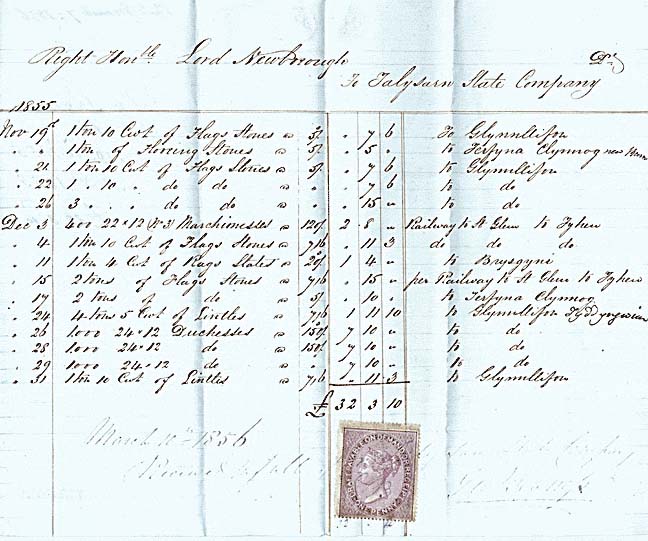 Right Honble Lord Newborough Dr
To Talysarn Slate Company
1855
Nov 19th 1 ton 10 Cwt of Flags Stones @ 5/ " 7 6 To Glynnllifon
" " 1 ton of Hooring Stones @ 5/ " 5 " to Terfyna Clynnog new
" 21 1 ton 10 Cwt of Flags Stones @ 5/ " 7 6 to Glynnllifon
" 22 1 " 10 " do do @ " 7 6 to do
" 26 3 " " do do @ " 15 " to do
Dec 3 400 22 × 12 (No 3) Marchionesses @ 120/ 2 8 " Railway to St Glen to Tyhen
" 4 1 ton 10 Cwt of Flags Stones @ 7/6 " 11 3 do do do
" 11 1 ton 4 Cwt of Rags Slates @ 20/ 1 4 " to Brysgyni
" 15 2 tons of Flags Stones @ 7/6 " 15 " per Railway to St Glen to Tyhen
" 17 2 tons of do @ 5/ " 10 " to Terfyna Clynnog
" 24 4 tons 5 Cwt of Lintles @ 7/6 1 11 10 to Glynnllifon
" 26 1000 24 × 12 Duchesses @ 150/ 7 10 " to do
" 28 1000 24 × 12 do @ 150/ 7 10 " to do
" 29 1000 24 × 12 do 7 10 " to do
" 31 1 ton 10 Cwt of Lintles @ 7/6 " 11 3 to Glynnllifon
£ 32 3 10
March 1856
DRAFT PAYABLE ON DEMAND OR RECEIPT
ONE PENNY